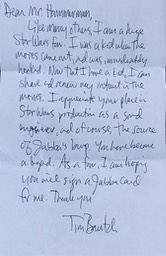 Dear Mr Hammerman,
Like many others, I am a huge
Star Wars fan. I was a kid when the
movies came out, and was immediately
hooked. Now that I have a kid, I can
share & renew my interest in the
movies. I appreciate your place in
Star Wars production as a sound
engineer, and of course, the source
of Jabba's burp. You have become
a legend. As a fan, I am hoping
you will sign a Jabba card
for me. Thank you,
Tim